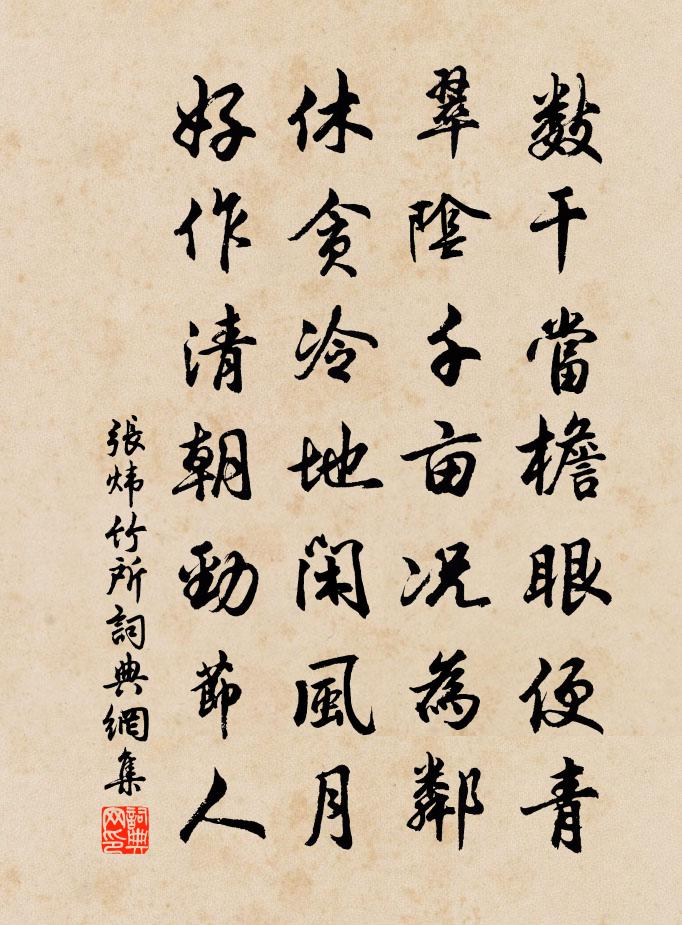 數干當檐眼便青
翠陰千亩况為鄰
休貪冷地閑風月
好作清朝勁節人
張炜竹所詞典網集
詞典網印